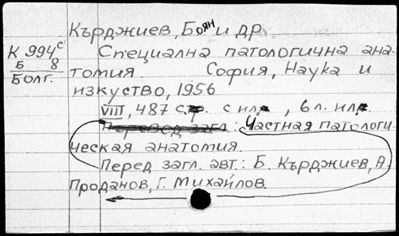 Кърджиев, Боян и др.
К 994с
Б 8
Болг.
Специална патологична ана-
томия. София, Наука и
изкуство, 1956
VIII, 487 стр. с ил., 6 л. ил.
Превод загл.: Частная патологи-
ческая анатомия.
Перед загл. авт.: Б. Кърджиев, А.
Проданов, Г. Михайлов.